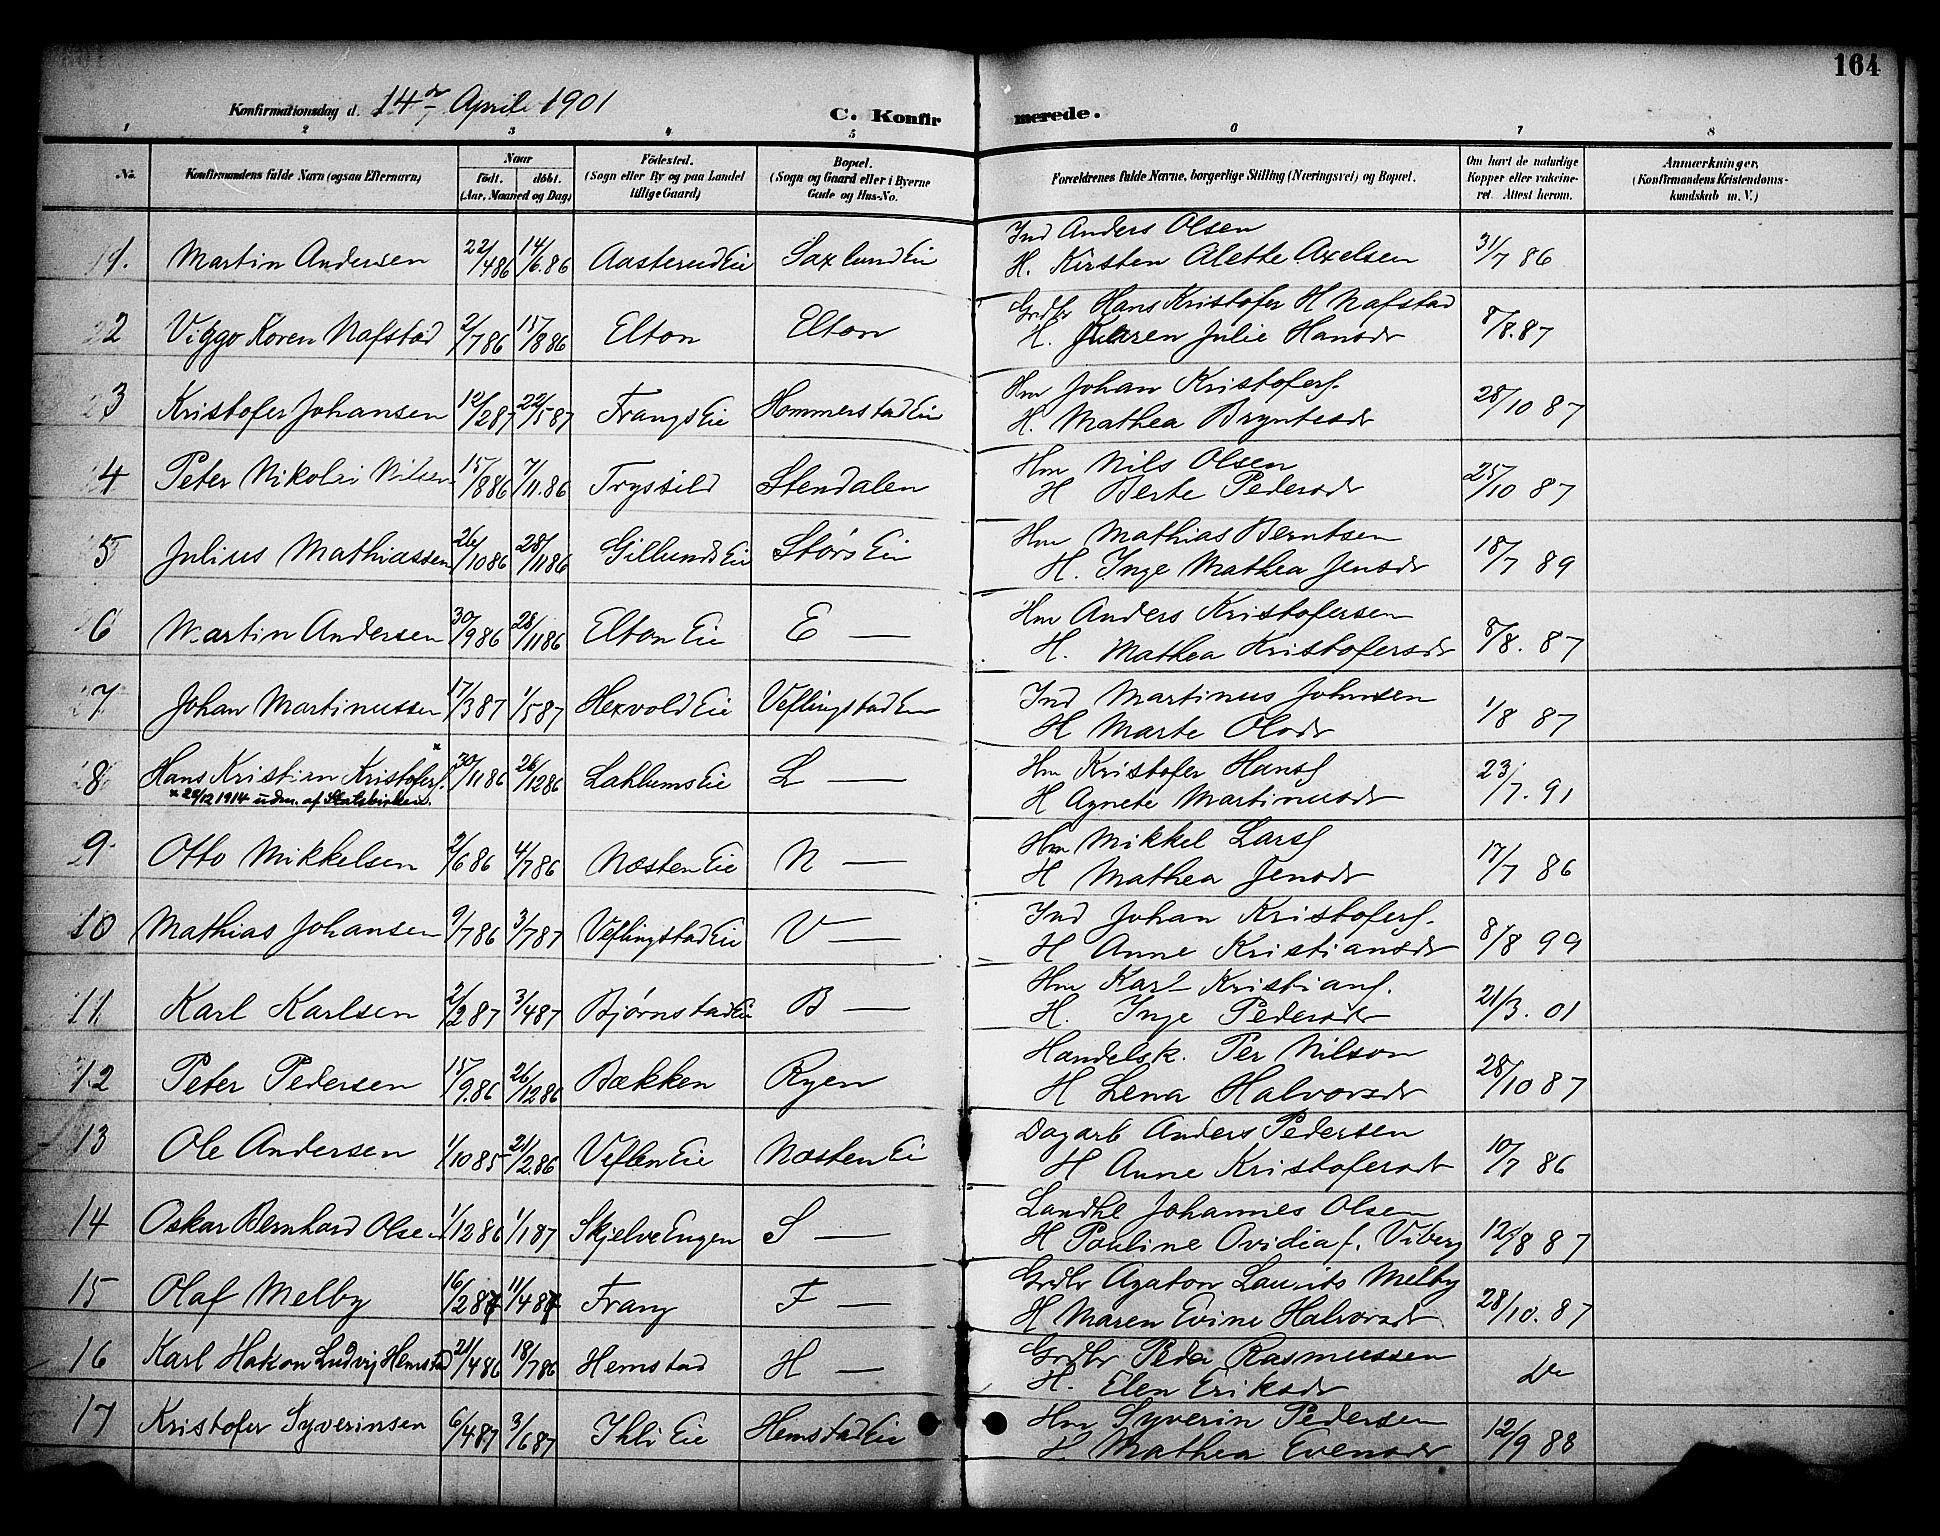 164
Konfirmationsdag d. 14de April 1901
C. Konfirmerede.
1 2 3 4 5 6 7 8
No. Konfirmandens fulde Navn (ogsaa Efternavn) Naar født. døbt. (Aar, Maaned og Dag) Fødested. (Sogn eller By og paa Landet tillige Gaard) Bopæl. (Sogn og Gaard eller i Byerne Gade og Hus-No. Forældrenes fulde Navne, borgerlige Stilling (Næringsvei) og Bopæl. Om havt de naturlige Kopper eller vakcineret. Attest herom. Anmærkninger. (Konfirmandens Kristendomskundskab m. V.)
1. Martin Andersen 22/4 86 14/6. 86 Aasterud Eie Saxlund Eie Ind Anders Olsen 31/7 86
H. Kirsten Alette Axelsen
2 Viggo Koren Nafstad 2/7 86 15/8 86 Elton Elton Grdbr Hans Kristofer H Nafstad 8/8. 87
H. Karen Julie Hansdr
3 Kristofer Johansen 12/2 87 22/5 87 Frangs Eie Hommerstad Eie Hm Johan Kristofers. 28/10 87
H. Mathea Bryntesdr
4 Peter Nikolai Nilsen 15/8 86 7/11. 86 Tryssild Stendalen Hm Nils Olsen 25/10 87
H Berte Pedersdr
5 Julius Mathiassen 26/10 86 28/11 86 Gillunds Eie Størs Eie Hm Mathias Berntsen 18/7 89
H. Inge Mathea Jensdr
6 Martin Andersen 30/9 86 28/11 86 Elton Eie E — Hm Anders Kristofersen 8/8. 87
H. Mathea Kristofersdr
7 Johan Martinussen 17/3 87 1/5 87 Hexvold Eie Veflingstad Eie Ind Martinus Johnsen 1/8 87
H Marte Olsdr
8 Hans Kristian Kristofers. x 30/11 86 26/12 86 Lahlums Eie L — Hm Kristofer Hans 23/7. 91
x 12 1914 udm. af Statskirken. H Agnete Martinusdr
9 Otto Mikkelsen 2/6 86 4/7 86 Næsten Eie N — Hm Mikkel Lars 17/7 86
H Mathea Jensdr
10 Mathias Johansen 9/7 86 3/7 87 Veflingstad Eie V — Ind Johan Kristofers. 8/8 99
H Anne Kristiansdr
11 Karl Karlsen 2/2 87 3/4 87 Bjørnstad Eie B — Hm Karl Kristians. 21/3. 01
H. Inge Pedersdr
12 Peter Pedersen 15/9. 86 26/12 86 Bækken Ryen Handelsk. Per Nilson 28/10 87
H Lena Halvorsdr
13 Ole Andersen 1/10 85 21/2 86 Veflen Eie Næsten Ei Dagarb Anders Pedersen 10/7 86
H Anne Kristofersdt
14 Oskar Bernhard Olsen 1/12 86 1/1 87 Skjelve Engen S — Landh Johannes Olsen 12/8 87
H Pauline Ovidia f. Viberg
15 Olaf Melby 16/2 87 11/4 87 Frang F — Grdbr Agaton Laurits Melby 28/10. 87
H Maren Evine Halvorsdr
16 Karl Hakon Ludvig Hemstad 21/4 86 18/7 86 Hemstad H — Grdbr Peder Rasmussen Do
H. Elen Eriksdr
17 Kristofer Syverinsen 6/4 87 3/6 87 Ihli Eie Hemstad Eie Hm Syverin Pedersen 12/9 88
H. Mathea Evensdr